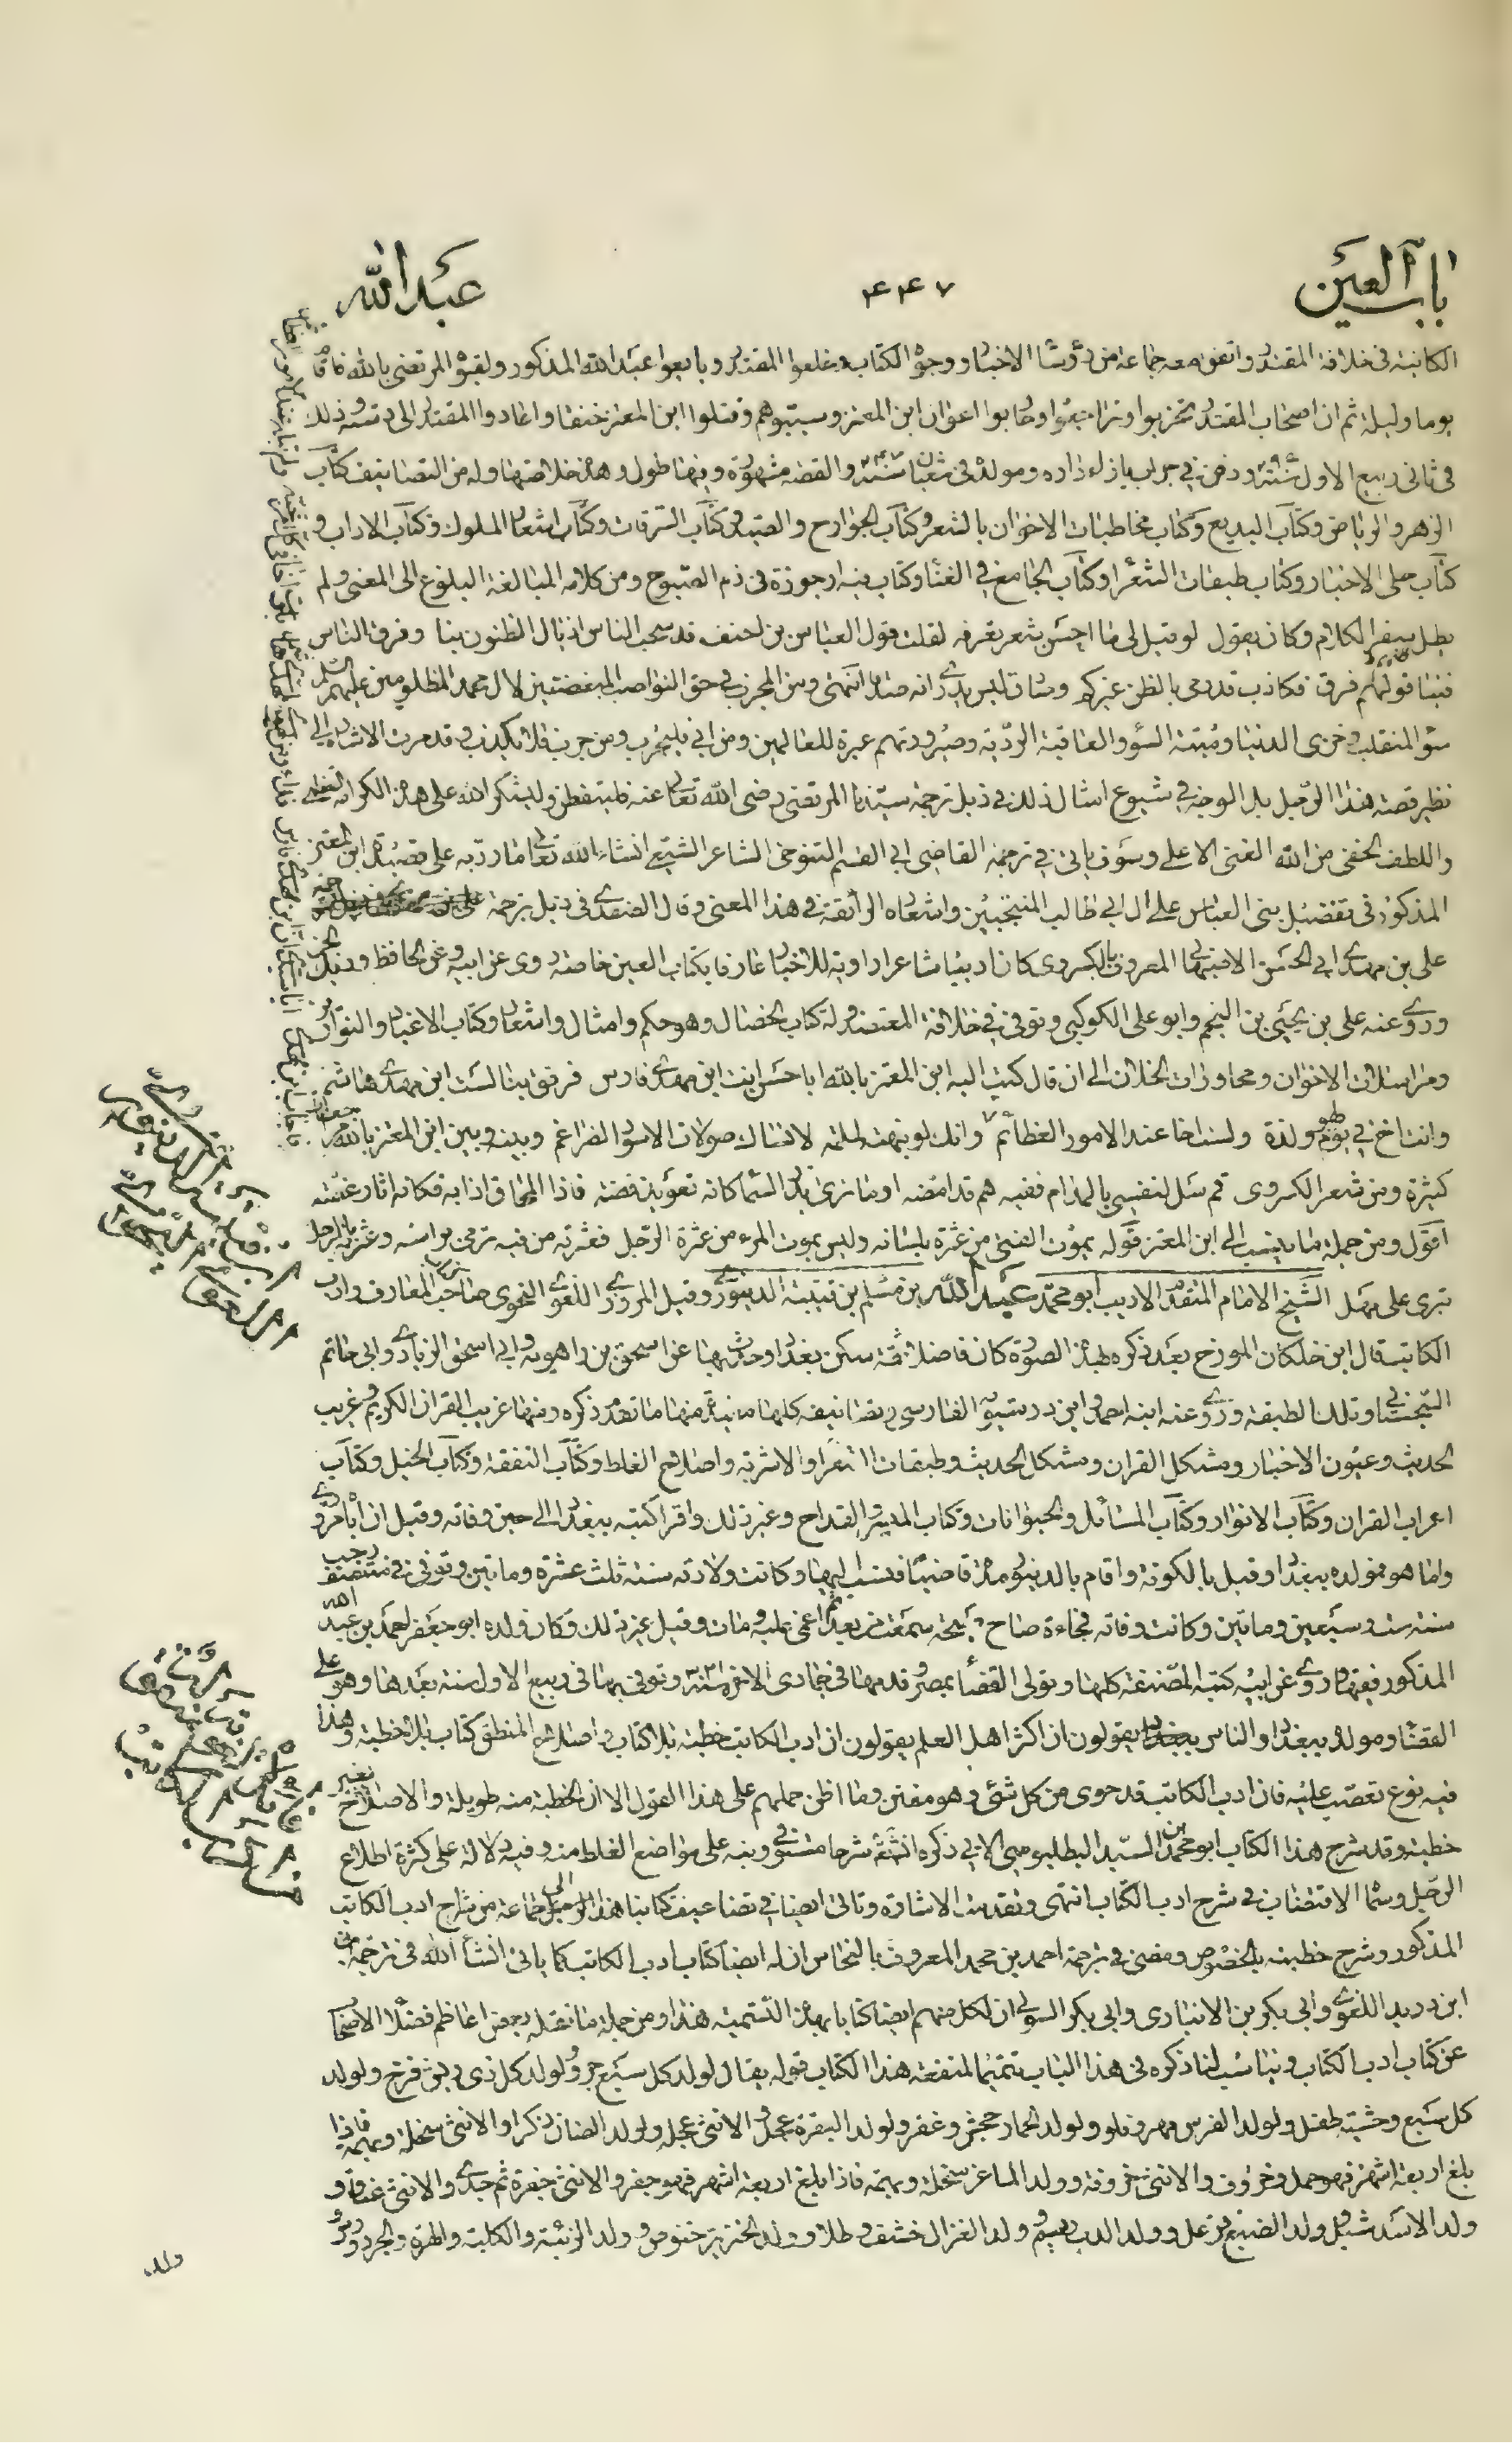 باب العين
۴۴۷
عبد الله
الكائنة فى خلافة المقتدر واتفق معه جماعة من رؤسا الاجناد ووجوه الكتاب فخلعوا المقتدر وبايعوا عبد الله المذكور ولقبوه المرتضى بالله فاقام
يوما وليلة ثم ان اصحاب المقتدر تحزبوا وتراجعوا وحاربوا اعوان ابن المعتز وشتتوهم وقتلوا ابن المعتز خنقا واعادوا المقتدر الى دسته وذلك
فى ثانى ربيع الاول ودفن فى خراب بازاء داره ومولده فى شعبان والقصة مشهورة وفيها طول وهذه خلاصتها وله من التصانيف كتاب
الزهر والرياض وكتاب البديع وكتاب مخاطبات الاخوان بالشعر وكتاب الجوارح والصيد وكتاب السرقات وكتاب اشعار الملوك وكتاب الاداب و
كتاب حلى الاخبار وكتاب طبقات الشعرا وكتاب الجامع فى الغنا وكتاب فيه ارجوزة فى ذم الصبوح ومن كلامه البلاغة البلوغ الى المعنى ولم
يطل سفر الكلام وكان يقول لو قيل لى ما احسن شعر تعرفه لقلت قول العباس بن احنف قد سحب الناس اذيال الظنون بنا وفرق الناس
فينا قولهم فرق فكاذب قد رمى بالظن غيركم وصادق ليس يدرى انه صدقا انتهى ومن المجرب فى حق النواصب المبغضين لال محمد المظلومين عليهم السلم
سوء المنقلب وخزى الدنيا وميتة السوء والعاقبة الردية وصيرورتهم عبرة للعالمين ومن ابى فليجرب ومن جرب فلا يكذب وقد مرت الاشارة الى
نظير قصة هذا الرجل بل الوجه فى شيوع امثال ذلك فى ذيل ترجمة سيدنا المرتضى رضى الله تعالى عنه فليتفطن وليشكر الله على هذه الكرامة العظمى
واللطف الخفى من الله الغنى الاعلى وسوف ياتى فى ترجمة القاضى ابى القسم التنوخى الشاعر الشيعى انشاء الله تعالى ما رد به على قصيدة ابن المعتز
المذكور فى تفضيل بنى العباس على ال ابى طالب المنتجبين واشعاره الرائقة فى هذا المعنى وقال الصفدى فى ذيل ترجمة
على بن مهدى ابى الحسن الاصبهانى المعروف بالكسروى كان اديبا شاعرا راوية للاخبار عارفا بكتاب العين خاصة روى عن ابيه وعن الجاحظ ودعبل
وروى عنه على بن يحيى بن المنجم وابو على الكوكبى وتوفى فى خلافة المعتضد وله كتاب الخصال وهو حكم وامثال واشعار وكتاب الاعياد والنواريز
ومراسلات الاخوان ومحاورات الخلان الى ان قال كتب اليه ابن المعتز بالله ابا حسن انت ابن مهدى فارس فرفقا بنا لست ابن مهدى هاشم
وانت اخ فى يوم لهو ولذة ولست اخا عند الامور العظائم وانك لو نبهته لملمة لانساك صولات الاسود الضراغم وبينه وبين ابن المعتز بالله
كثيرة ومن شعر الكسروى قم سل لنفسى بالمدام ففيه هم قد امضه اوما ترى بدر السما كانه تعويذ فضة
اقول ومن جملة ما ينسب الى ابن المعتز قوله يموت الفتى من عثرة بلسانه وليس يموت المرء من عثرة الرجل فعثرته من فيه ترمى براسه وعثرته بالرجل
تبرى على مهل الشيخ الامام المتقدم الاديب ابو محمد عبد الله بن مسلم بن قتيبة الدينورى وقيل المروزى اللغوى النحوى صاحب المعارف وادب
الكاتب قال ابن خلكان المورخ بعد ذكره بهذه الصورة كان فاضلا ثقة سكن بغداد وحدث بها عن اسحق بن راهويه وابى اسحق الزيادى وابى حاتم
السجستانى وتلك الطبقة وروى عنه ابنه احمد وابن درستويه الفارسى وتصانيفه كلها مفيدة منها ما تقدم ذكره ومنها غريب القران الكريم وغريب
الحديث وعيون الاخبار ومشكل القران ومشكل الحديث وطبقات الشعرا والاشربة واصلاح الغلط وكتاب التفقه وكتاب الخيل وكتاب
اعراب القران وكتاب الانوار وكتاب المسائل والجوابات وكتاب الميسر والقداح وغير ذلك واقرا كتبه ببغداد الى حين وفاته وقيل ان اباه مروزى
واما هو فمولده ببغداد وقيل بالكوفة واقام بالدينور مدة قاضيا فنسب اليها وكانت ولادته سنة ثلث عشرة وماتين وتوفى فى منتصف رجب
سنة ست وسبعين وماتين وكانت وفاته فجاءة صاح صيحة سمعت من بعد ثم اغمى عليه ومات وقيل غير ذلك وكان ولده ابو جعفر احمد بن عبد الله
المذكور فقيها وروى عن ابيه كتبه المصنفة كلها وتولى القضا بمصر وقدمها فى جمادى الاخرة وتوفى بها فى ربيع الاول سنة بعدها وهو على
القضا ومولده ببغداد والناس يقولون ان اكثر اهل العلم يقولون ان ادب الكاتب خطبة بلا كتاب واصلاح المنطق كتاب بلا خطبة وهذا
فيه نوع تعصب عليه فان ادب الكاتب قد حوى من كل شئ وهو مفنن وما اظن حملهم على هذا القول الا ان الخطبة منه طويلة والاصلاح بغير
خطبة وقد شرح هذا الكتاب ابو محمد بن السيد البطليوسى الاتى ذكره انشاء الله شرحا مستوفى ونبه على مواضع الغلط منه وفيه دلالة على كثرة اطلاع
الرجل وسماه الاقتضاب فى شرح ادب الكتاب انتهى وتقدمت الاشارة وتاتى ايضا فى تضاعيف كتابنا هذا الى جماعة من شراح ادب الكاتب
المذكور وشرح خطبته بالخصوص ومضى فى ترجمة احمد بن محمد المعروف بالنحاس ان له ايضا كتاب ادب الكاتب كما ياتى انشاء الله فى ترجمة
ابن دريد اللغوى وابى بكر بن الانبارى وابى بكر الصولى ان لكل منهم ايضا كتابا بهذه التسمية هذا ومن جملة ما نقله بعض اعاظم فضلاء الاصحاب
عن كتاب ادب الكتاب ويناسب لنا ذكره فى هذا الباب تتميما لمنفعة هذا الكتاب قوله يقال لولد كل سبع جرو ولولد كل ذى ريش فرخ ولولد
كل سبع وحشية طفل ولولد الفرس مهر وفلو ولولد الحمار جحش وعفو ولولد البقرة عجل والانثى عجلة ولولد الضان ذكرا والانثى سخلة وبهمة فاذا
بلغ اربعة اشهر فهو حمل وخروف والانثى خروفة وولد الماعز سخلة وبهمة فاذا بلغ اربعة اشهر فهو جفر والانثى جفرة ثم جدى والانثى عناق و
ولد الاسد شبل وولد الضبع فرعل وولد الدب ديسم وولد الغزال خشف وطلا وولد الخنزير خنوص وولد الكلبة والهرة
ولد